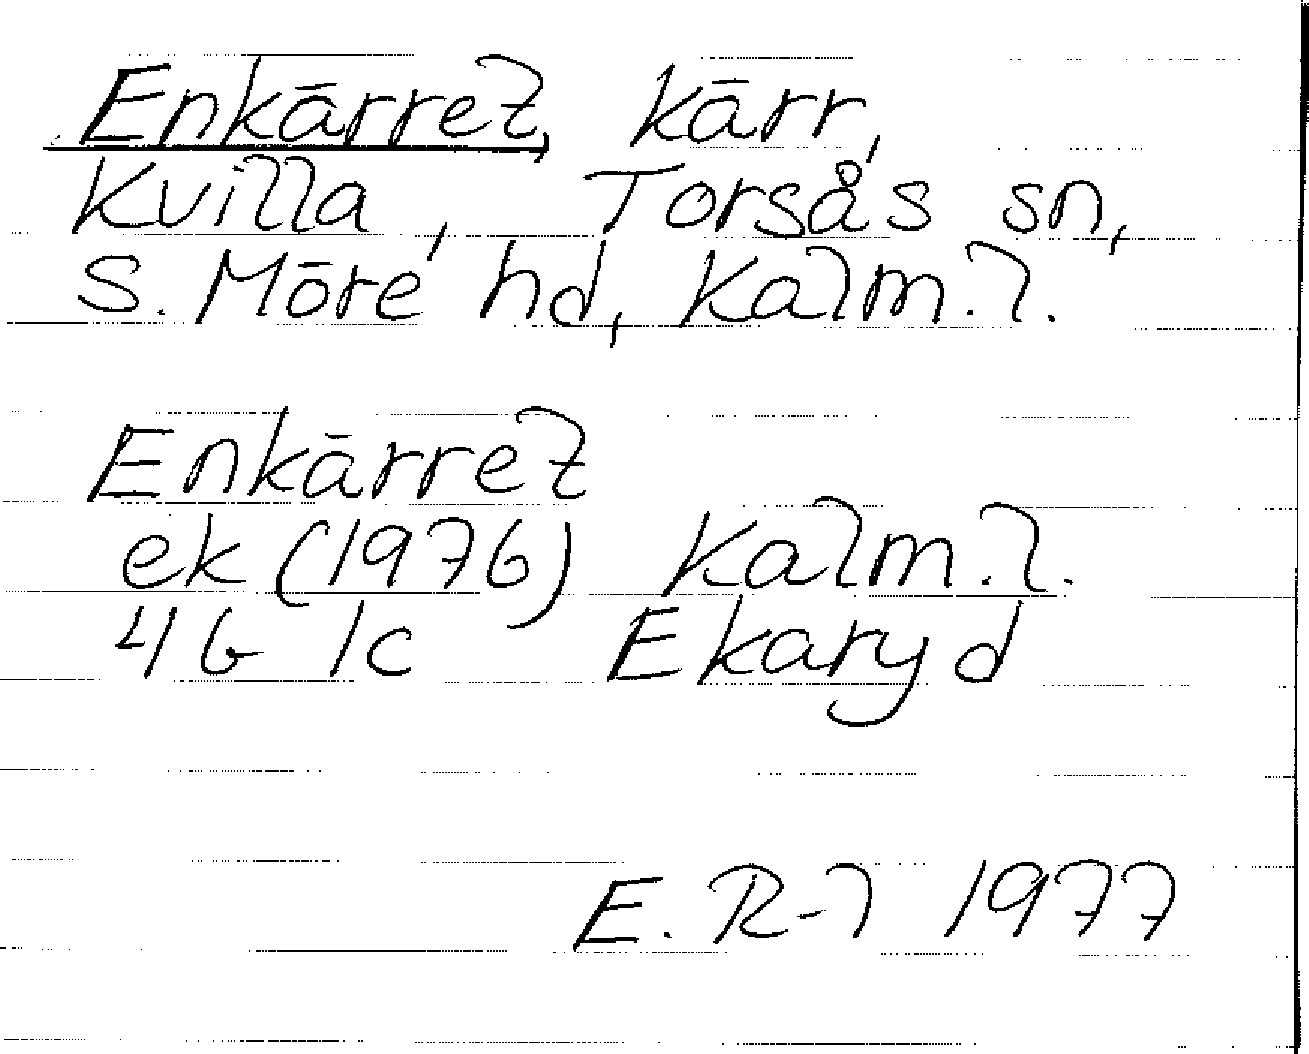 Enkärret, kärr,
Kvilla, Torsås sn,
S. Möre hd, Kalm. l.
Enkärret
ek (1976) Kalm. l.
4G 1c Ekaryd
E. R-l 1977